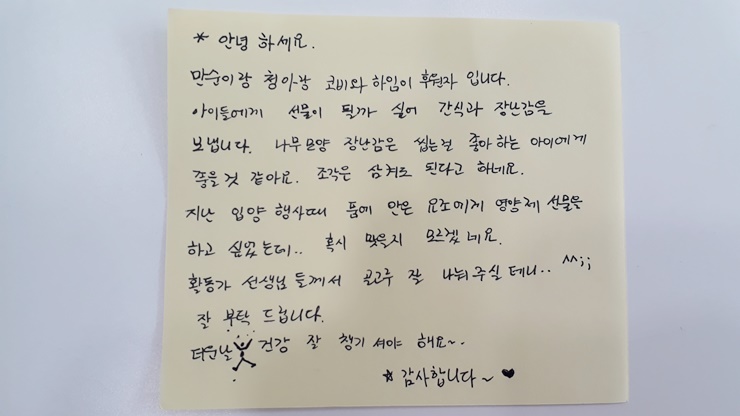 * 안녕 하세요.
만순이랑 청아랑 코비와 하임이 후원자 입니다.
아이들에게 선물이 될까 싶어 간식과 장난감을
보냅니다. 나무모양 장난감은 씹는걸 좋아하는 아이에게
좋을것 같아요. 조각은 삼켜도 된다고 하네요.
지난 입양 행사때 품에 안은 요조에게 영양제 선물을
하고 싶었는데.. 혹시 맞을지 모르겠네요.
활동가 선생님 들께서 골고루 잘 나눠주실 테니.. ^^;;
잘 부탁 드립니다.
더운날 건강 잘 챙기셔야 해요~.
* 감사합니다~ ♥